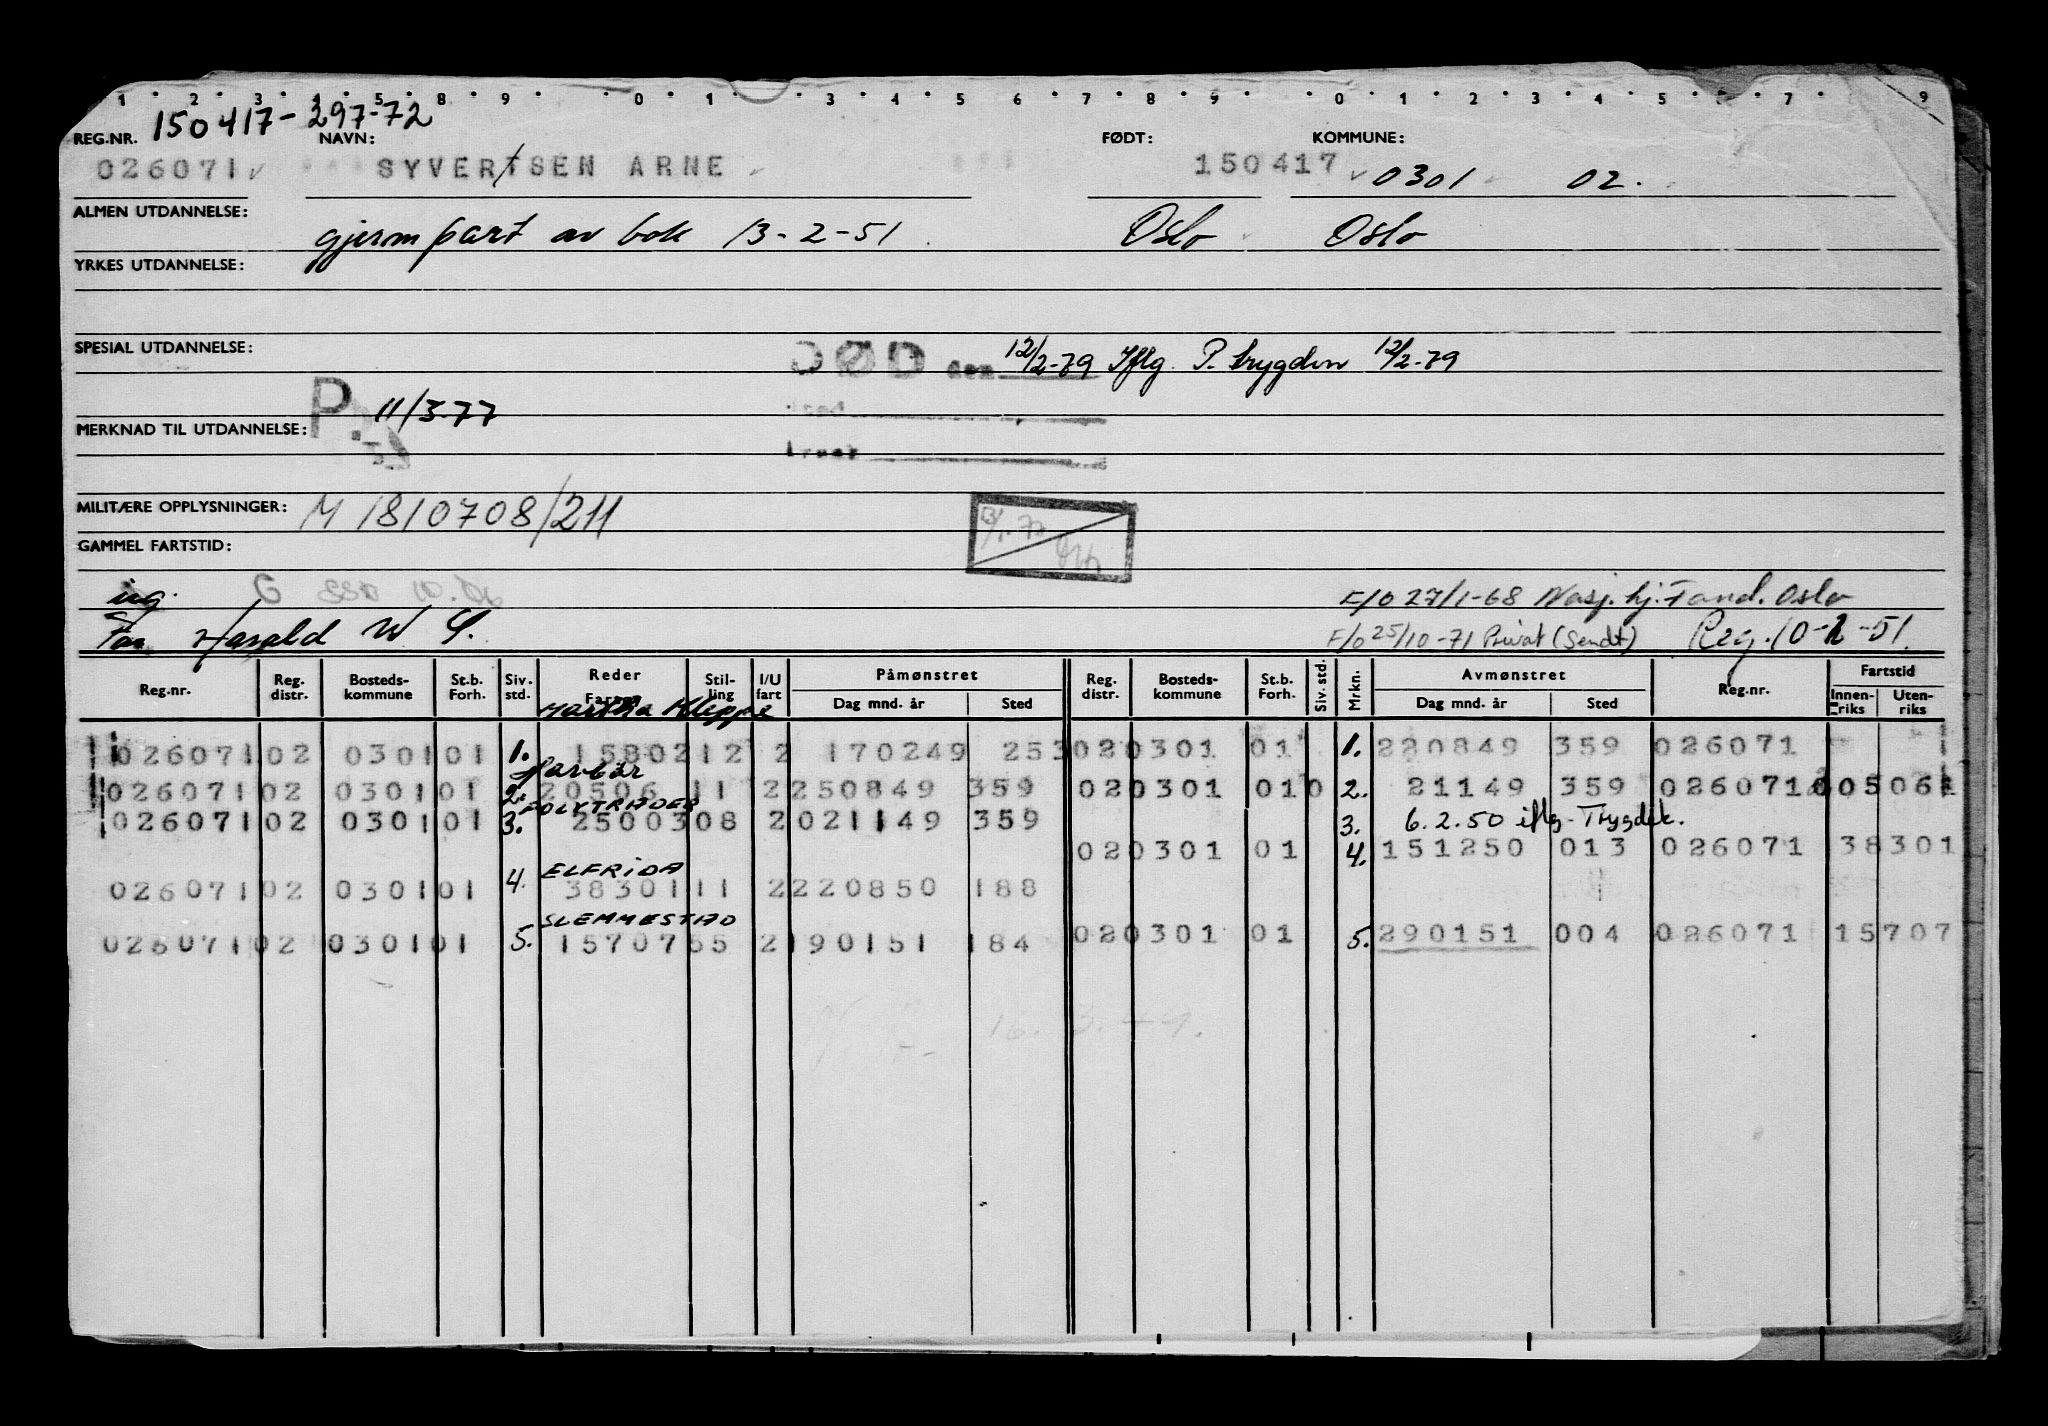 1 2 3 4 5 8 9 0 1 3 4 5 6 7 8 9 0 1 2 3 4 5 6 7 9
150417-297-72
REG.NR. NAVN: FØDT: KOMMUNE:
026071 SYVERTSEN ARNE 150417 0301 02.
ALMEN UTDANNELSE: gjennpart av bok 13-2-51. Oslo Oslo
YRKES UTDANNELSE:
SPESIAL UTDANNELSE: DØD den 12/2-79 Iflg P. trygden 12/2-79
P. 11/3-77
MERKNAD TIL UTDANNELSE:
MILITÆRE OPPLYSNINGER: M 1810708/211
GAMMEL FARTSTID:
ug. F/O 27/1-68 Nasj. hj. Fond. Oslo
Far Harald W S. F/o 25/10-71 Privat (Sendt) Reg. 10-2-51.
Reg.nr. Reg. distr. Bosteds- kommune St.b. Forh. Siv. std. Reder Fartøy Stil- ling I/U fart Påmønstret Dag mnd. år Sted Reg. distr. Bosteds- kommune St.b. Forh. Siv. std. Mrkn. Avmønstret Dag mnd. år Sted Reg.nr. Fartstid Innen- riks Uten- riks
Martha Kleppe
026071 02 0301 01 1. 15802 12 2 170249 253 02 0301 01 1. 220849 359 026071
Havbør
026071 02 0301 01 2. 20506 11 2 250849 359 02 0301 01 0 2. 21149 359 026071
POLYTRADER
026071 02 0301 01 3. 25003 08 2 021149 359 3. 6.2.50 iflg. Trygdek.
02 0301 01 4. 151250 013 026071 38301
ELFRIDA
026071 02 0301 01 4. 38301 11 2 220850 188
SLEMMESTAD
026071 02 0301 01 5. 15707 55 2 190151 184 02 0301 01 5. 290151 004 026071 15707
16. 3. 44.